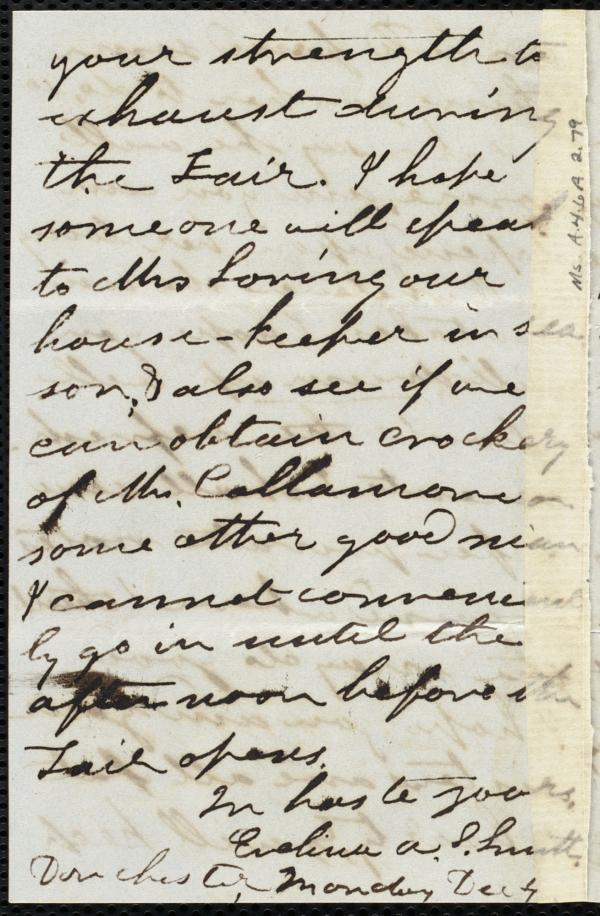 your strength to
exhaust during
the Fair. I hope
someone will speak
to Mrs Loring our
house-keeper in sea
son, & also see if we
can obtain crockery
of Mr. Collamore or
some other good man
I cannot convenient
ly go in until the
afternoon before the
Fair opens.
In haste yours,
Evelina A. S. Smith.
Dorchester, Monday Dec 4
Ms. A.4.6A.2.79